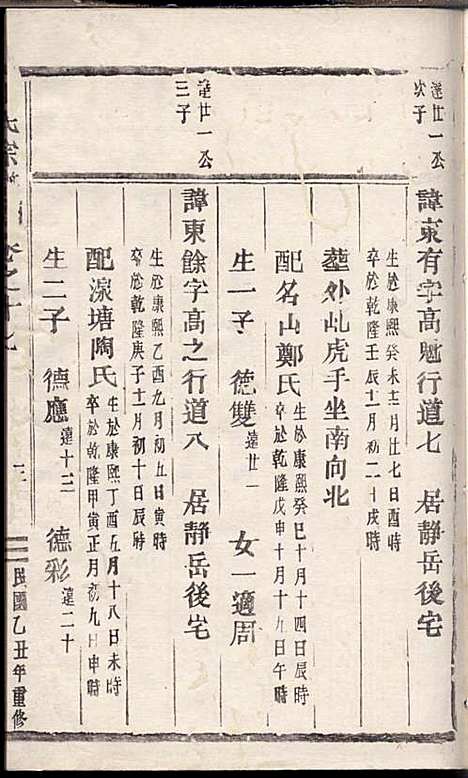 達廿一公
次子
諱東有字高魁行道七 居靜岳後宅
生於康熙癸未十二月廿七日酉時
卒於乾隆壬辰十二月初二十戌時
塟外乩虎手坐南向北
配名山鄭氏
生於康熙癸巳十月十四日辰時
卒於乾隆戊申十月十九日午時
生一子 德雙 達廿一 女一適周
達廿一公
三子
諱東餘字高之行道八 居靜岳後宅
生於康熙乙酉九月初五日寅時
卒於乾隆庚子十二月初十日辰時
配湶塘陶氏
生於康熙丁酉五月十八日未時
卒於乾隆甲寅正月初九日申時
生二子 德應 達十三 德彩 達二十
氏宗 卷之十七
民國乙丑年重修